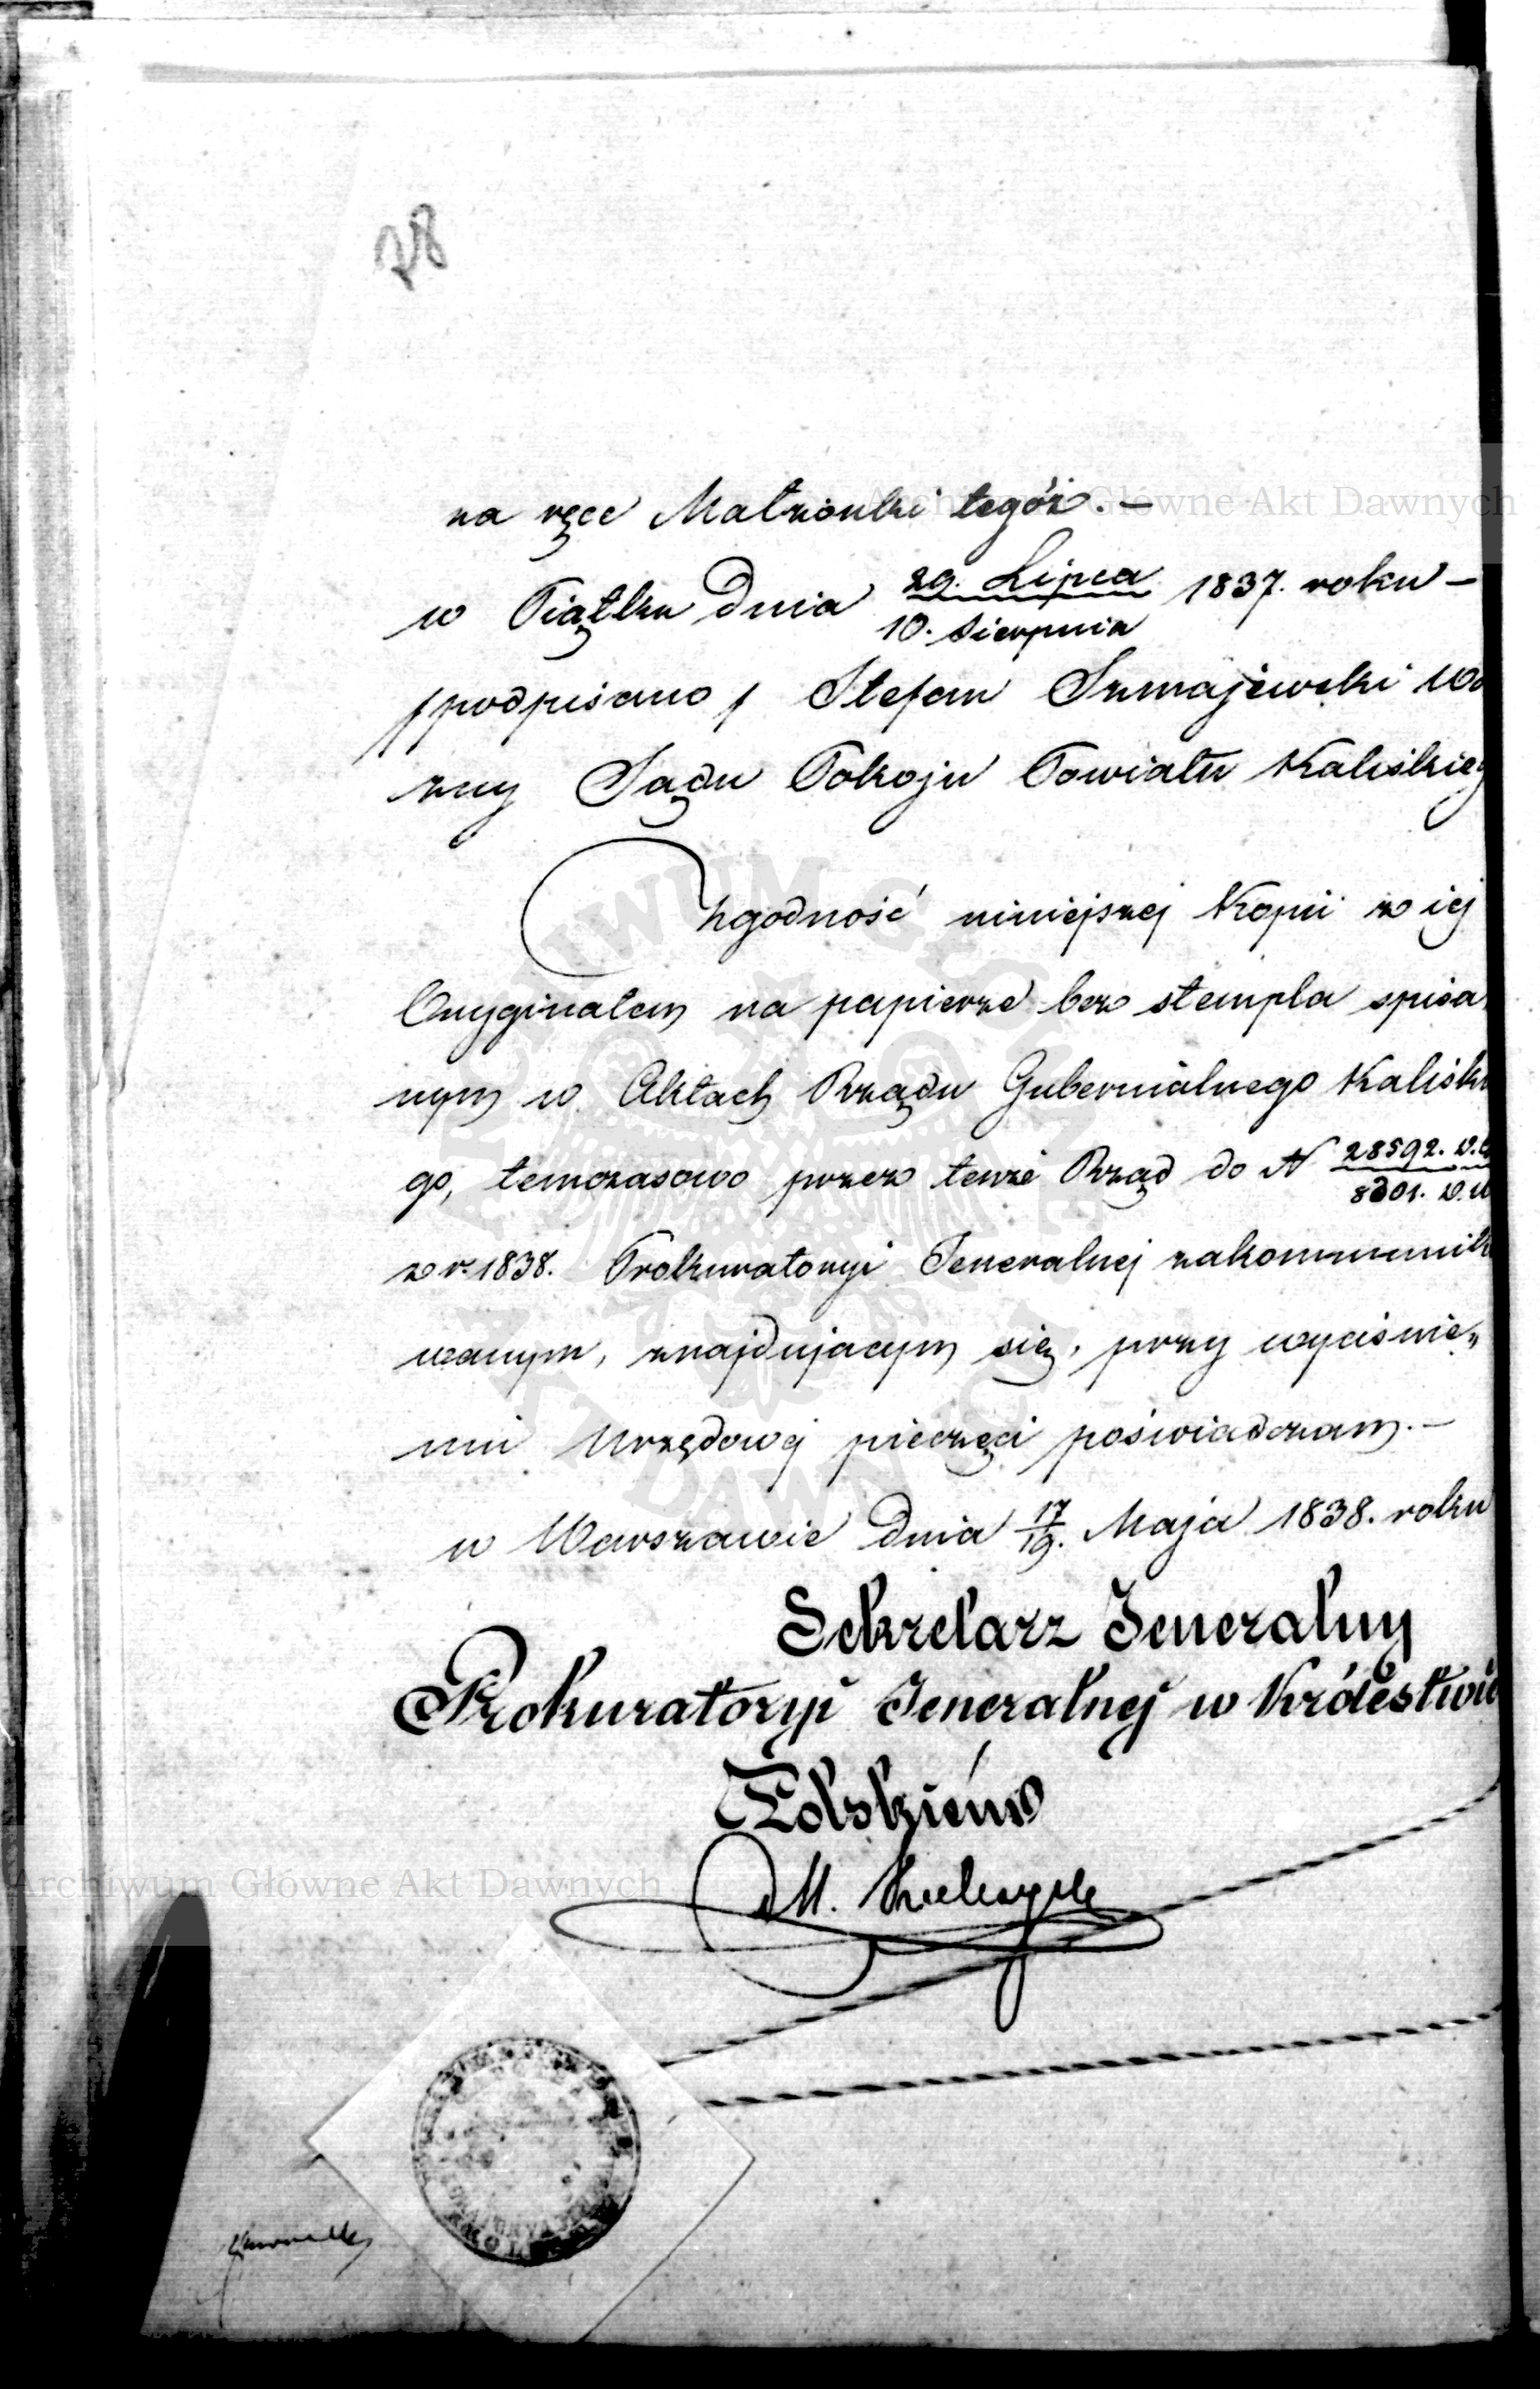 78
na ręce Małżonki tegóż. —
w Piątku dnia 29. Lipca / 10. Sierpnia 1837. roku —
/podpisano/ Stefan Szmajewski Wo
zny Sądu Pokoju Powiatu Kaliskieg
Zgodność niniejszej Kopii z iej
Oryginałem na papierze bez stempla spisa
nym w Aktach Rządu Gubernialnego Kalisk
go, temczasowo przez tenże Rząd do N 28592. / 8301.
z r. 1838. Prokuratoryi Jeneralnej zakommunik
wanym, znajdującym się, przy wyciśnie„
niu Urzędowej pieczęci poświadczam. —
w Warszawie dnia 17/19. Maja 1838. roku
Sekretarz Jeneralny
Prokuratoryi Jeneralnej w Królestwie
Polskiém
M.
Archiwum Główne Akt Dawnych
Archiwum Główne Akt Dawnych
ARCHIWUM GŁÓWNE AKT DAWNYCH